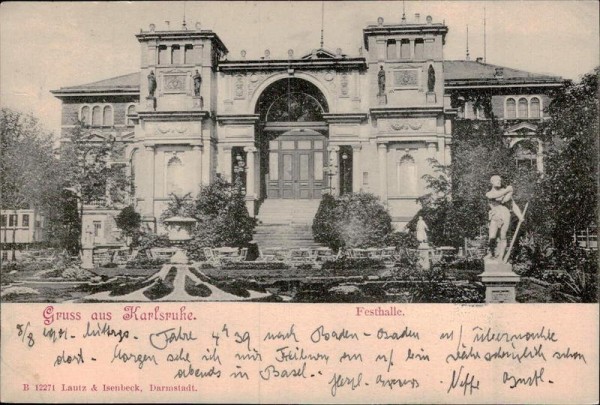 Gruss aus Karlsruhe.
Festhalle.
5/8 1901. mittags. Fahre 4h 39 nach Baden-Baden u/ übernachte
dort. Morgen sehe ich mir Freiburg an u/ bin wahrscheinlich schon
abends in Basel. Herzl. Neffe
B 12271 Lautz & Isenbeck, Darmstadt.